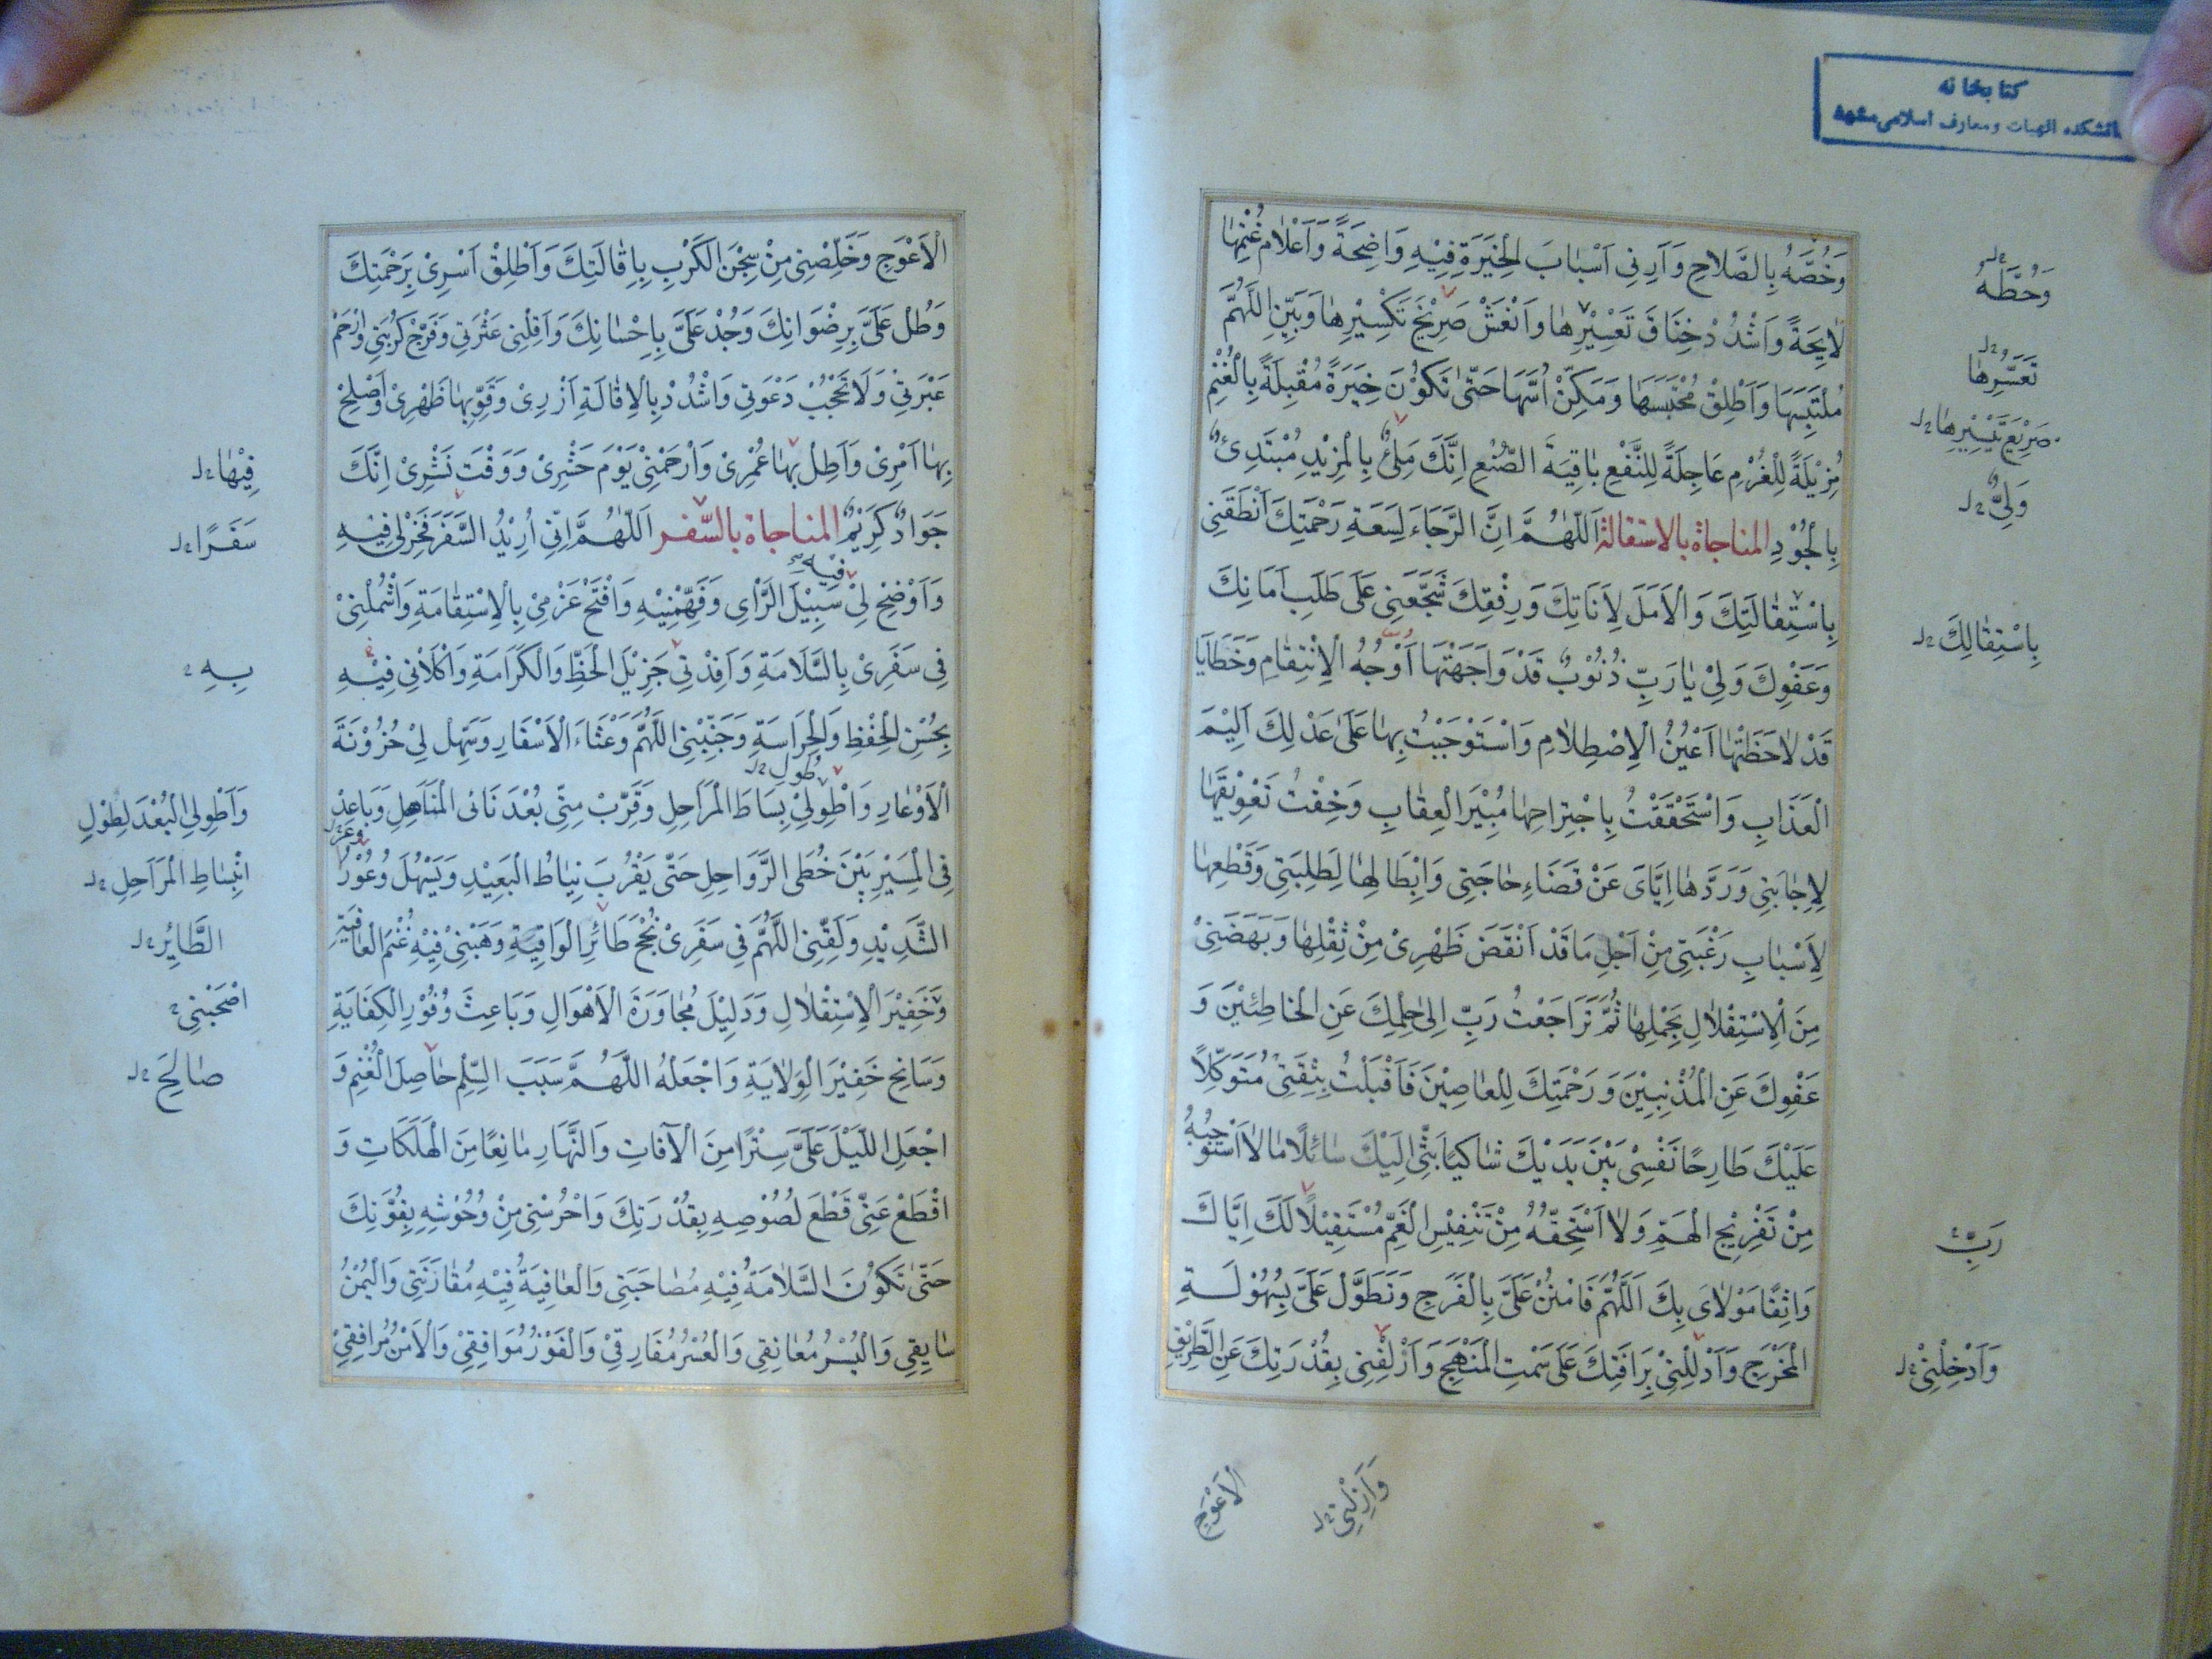 كتابخانه
دانشكده الهيات ومعارف اسلامى مشهد
وَخُصَّهُ بِالصَّلاحِ وَاَرِنِي اَسْبابَ الْخِيَرَةِ فِيْهِ وَاضِحَةً وَاَعْلامَ غُنْمِها
لايِحَةً وَاشْدُدْ خِناقَ تَعْسِيْرِها وَانْعَشْ صَرِيْخَ تَكْسِيْرِها وَبَيِّنِ اللّهُمَّ
مُلْتَبِسَهَا وَاَطْلِقْ مُحْتَبَسَهَا وَمَكِّنْ اُسَّهَا حَتّى تَكُوْنَ خِيَرَةً مُقْبِلَةً بِالْغُنْمِ
مُزِيْلَةً لِلْغُرْمِ عَاجِلَةً لِلنَّفْعِ بَاقِيَةَ الصُّنْعِ اِنَّكَ مَلِئٌ بِالْمَزِيْدِ مُبْتَدِئٌ
بِالْجُوْدِ المناجاة بالاستقالة اَللّهُمَّ اِنَّ الرَّجَاءَ لِسَعَةِ رَحْمَتِكَ اَنْطَقَنِي
بِاسْتِقَالَتِكَ وَالْاَمَلَ لِاَنَاتِكَ وَرِفْقِكَ شَجَّعَنِي عَلَى طَلَبِ اَمَانِكَ
وَعَفْوِكَ وَلِيْ يَا رَبِّ ذُنُوْبٌ قَدْ وَاجَهَتْهَا اَوْجُهُ الْاِنْتِقامِ وَخَطَايَا
قَدْ لاحَظَتْهَا اَعْيُنُ الْاِصْطِلامِ وَاسْتَوْجَبْتُ بِها عَلى عَدْلِكَ اَلِيْمَ
الْعَذَابِ وَاسْتَحْقَقْتُ بِاجْتِراحِها مُبِيْرَ الْعِقابِ وَخِفْتُ تَعْوِيْقَها
لِاِجابَتِي وَرَدَّها اِيَّاىَ عَنْ قَضَاءِ حاجَتِي وَاِبْطالِها لِطَلِبَتِي وَقَطْعِها
لِاَسْبابِ رَغْبَتِي مِنْ اَجْلِ مَا قَدْ اَنْقَضَ ظَهْرِىْ مِنْ ثِقْلِها وَبَهَضَنِيْ
مِنَ الْاِسْتِقْلالِ بِحَمْلِها ثُمَّ تَرَاجَعْتُ رَبِّ اِلى حِلْمِكَ عَنِ الْخاطِئِيْنَ وَ
عَفْوِكَ عَنِ الْمُذْنِبِيْنَ وَرَحْمَتِكَ لِلْعاصِيْنَ فَاَقْبَلْتُ بِثِقَتِيْ مُتَوَكِّلاً
عَلَيْكَ طَارِحًا نَفْسِىْ بَيْنَ يَدَيْكَ شاكِيًا بَثِّي اِلَيْكَ سائلًا ما لا اَسْتَوْجِبُهُ
مِنْ تَفْرِيْجِ الْهَمِّ وَلا اَسْتَحِقُّهُ مِنْ تَنْفِيْسِ الْغَمِّ مُسْتَقِيْلاً لَكَ اِيَّاكَ
وَاثِقًا مَوْلاىَ بِكَ اَللّهُمَّ فَامْنُنْ عَلَىَّ بِالْفَرَجِ وَتَطَوَّلْ عَلَىَّ بِسُهُوْلَةِ
الْمَخْرَجِ وَاَدْلِلْنِيْ بِرَأفَتِكَ عَلى سَمْتِ الْمَنْهَجِ وَاَزْلِقْنِي بِقُدْرَتِكَ عَنِ الطَّرِيْقِ
وَحُطَّهُ
تَعَسُّرِها
صَرِيْعَ تَيْسِيْرِها
وَلِيٌّ
بِاسْتِقالِكَ
رَبِّ
وَاَدْخِلْنِيْ
وَاَزِلْنِي
الْاَعْوَجِ
الْاَعْوَجِ وَخَلِّصْنِي مِنْ سِجْنِ الْكَرْبِ بِاِقالَتِكَ وَاَطْلِقْ اَسْرِىْ بِرَحْمَتِكَ
وَطُلْ عَلَىَّ بِرِضْوَانِكَ وَجُدْ عَلَىَّ بِاِحْسانِكَ وَاَقِلْنِي عَثْرَتِي وَفَرِّجْ كُرْبَتِي وَارْحَمْ
عَبْرَتِي وَلَا تَحْجُبْ دَعْوَتِي وَاشْدُدْ بِالْاِقالَةِ اَزْرِىْ وَقَوِّ بِها ظَهْرِىْ وَاَصْلِحْ
بِها اَمْرِىْ وَاَطِلْ بِها عُمْرِىْ وَارْحَمْنِيْ يَوْمَ حَشْرِىْ وَوَقْتَ نَشْرِىْ اِنَّكَ
جَوَادٌ كَرِيْمٌ المناجاة بالسّفر اَللّهُمَّ اِنِّي اُرِيْدُ السَّفَرَ فَخِرْ لِي فِيْهِ
وَاَوْضِحْ لِيْ فيه سَبِيْلَ الرَّأىِ وَفَهِّمْنِيْهِ وَافْتَحْ عَزْمِيْ بِالْاِسْتِقامَةِ وَاشْمُلْنِيْ
فِي سَفَرِىْ بِالسَّلَامَةِ وَاَفِدْنِي جَزِيْلَ الْحَظِّ وَالْكَرَامَةِ وَاكْلَاْنِي فِيْهِ
بِحُسْنِ الْحِفْظِ وَالْحِرَاسَةِ وَجَنِّبْنِي اللّهُمَّ وَعْثَاءَ الْاَسْفَارِ وَسَهِّلْ لِيْ حُزُوْنَةَ
الْاَوْعارِ وَاطْوِلِيْ طول بِسَاطَ الْمَرَاحِلِ وَقَرِّبْ مِنِّي بُعْدَ نَائ الْمَنَاهِلِ وَباعِدْ
فِي الْمَسِيْرِ بَيْنَ خُطَى الرَّوَاحِلِ حَتّى يَقْرُبَ نِياطُ الْبَعِيْدِ وَيَسْهُلَ وُعُوْرُ
الشَّدِيْدِ وَلَقِّنِي اللّهُمَّ فِي سَفَرِىْ نُجْحَ طَائِرِ الْوَاقِيَةِ وَهَبْنِيْ فِيْهِ غُنْمَ الْعافِيَةِ
وَخَفِيْرَ الْاِسْتِقْلالِ وَدَلِيْلَ مُجاوَزَةِ الْاَهْوَالِ وَبَاعِثَ وُفُوْرِ الْكِفَايَةِ
وَسَانِحَ خَفِيْرِ الْوِلايَةِ وَاجْعَلْهُ اللّهُمَّ سَبَبَ السِّلْمِ حاصِلَ الْغُنْمِ وَ
اجْعَلِ اللَّيْلَ عَلَىَّ سِتْرًا مِنَ الْآفاتِ وَالنَّهَارِ مانِعًا مِنَ الْهَلَكَاتِ وَ
اقْطَعْ عَنِّي قَطْعَ لُصُوْصِهِ بِقُدْرَتِكَ وَاحْرُسْنِي مِنْ وُحُوْشِهِ بِقُوَّتِكَ
حَتّى تَكُوْنَ السَّلامَةُ فِيْهِ مُصاحَبَتِي وَالْعافِيَةُ فِيْهِ مُقارَنَتِي وَالْيُمْنُ
سايِقِي وَالْيُسْرُ مُعانِقِي وَالْعُسْرُ مُفَارِقِيْ وَالْفَوْزُ مُوَافِقِيْ وَالْاَمْنُ مُرافِقِيْ
فِيْها
سَفَرًا
بِهِ
وَاَطْوِلِي الْبُعْدَ لِطُوْلِ
انْبِساطِ الْمَرَاحِلِ
الطَّايِرُ
اصْحَبْنِي
صالِحَ